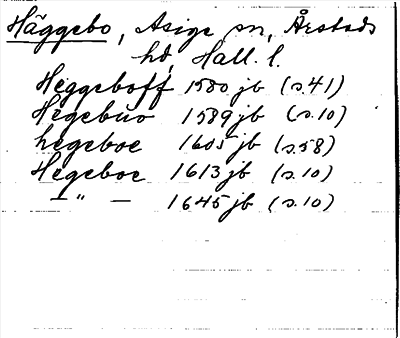 Häggebo, Asige sn, Årstads
hd, Hall. l.
Heggeboff 1580 jb (s.41)
Hegebuo 1589 jb (s.10)
hegeboe 1605 jb (s.58)
Hegeboe 1613 jb (s.10)
— " — 1645 jb (s.10)